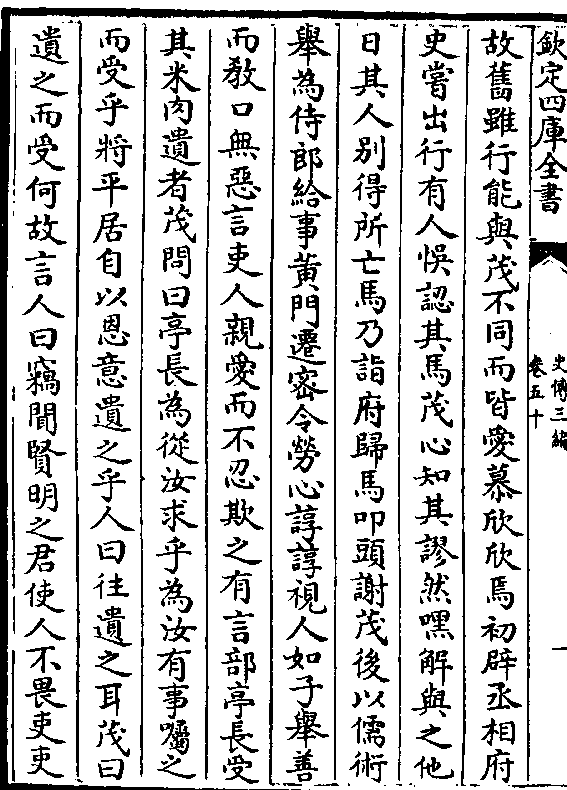 欽定四庫全書
史傳三編
卷五十
一
故舊雖行能與茂不同而皆愛慕欣欣焉初辟丞相府
史嘗出行有人悞認其馬茂心知其謬然嘿解與之他
日其人别得所亡馬乃詣府歸馬叩頭謝茂後以儒術
舉為侍郎給事黄門遷密令勞心諄諄視人如子舉善
而教口無惡言吏人親愛而不忍欺之有言部亭長受
其米肉遺者茂問曰亭長為從汝求乎為汝有事囑之
而受乎將平居自以恩意遺之乎人曰往遺之耳茂曰
遺之而受何故言人曰竊聞賢明之君使人不畏吏吏